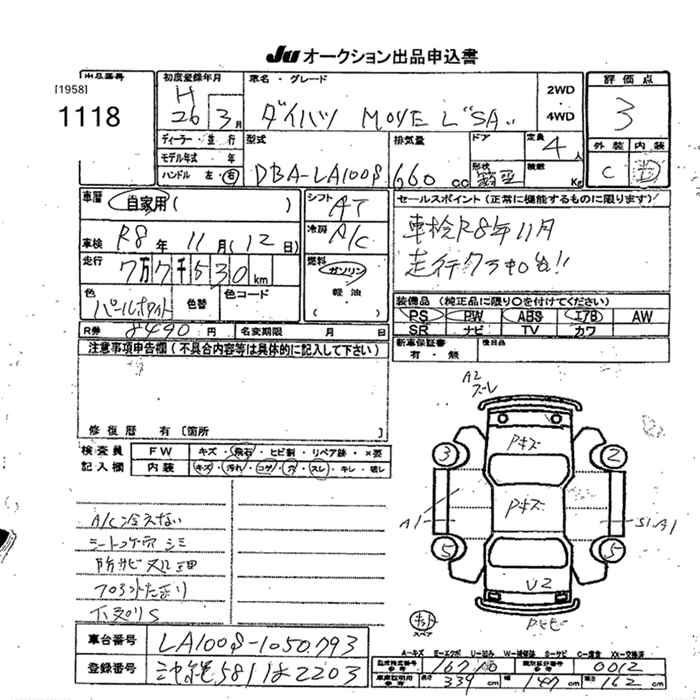 JU オークション出品申込書
出品番号
[1958]
1118
初度登録年月
H 26 3 月
車名・グレード
ダイハツ MOVE L"SA"
2WD
4WD
評価点
3
外装 内装
C D
ディーラー・並行
モデル年式 年
ハンドル 左・右
型式
DBA-LA100S
排気量
660 cc
ドア
形状
箱型
定員
4 人
積載
Kg
車歴
自家用( )
車検 R8年11月(12日)
走行 7万7千530km
色
パールホワイト
色替
色コード
シフト
AT
冷房
A/C
燃料
ガソリン
軽油
( )
セールスポイント(正常に機能するものに限ります)
車検R8年11月
走行7万キロ台!!
装備品(純正品に限り○を付けてください)
PS PW ABS エアB AW
SR ナビ TV カワ
R券 8490 円
名変期限 月 日
新車保証書
有・無
後日品
注意事項申告欄(不具合内容等は具体的に記入して下さい)
修復歴 有〔箇所 〕
検査員
記入欄
FW キズ・飛石・ヒビ割・リペア跡・×要
内装 キズ・汚れ・コゲ・穴・スレ・キレ・破レ
A/C冷えない
シートコゲ穴 シミ
防サビ処理
フロアフタ
A2
ズレ
Pキズ
3 2
Pキズ
A1 S1.A1
5 5
U2
Pヒビ
キット
スペア
車台番号 LA100S-1050793
登録番号 沖縄581は2203
A-キズ E-エクボ U-凹み W-補修跡 S-サビ C-腐食 XX-交換済
167 10
0012
長さ 339 cm 幅 147 cm 高さ 162 cm